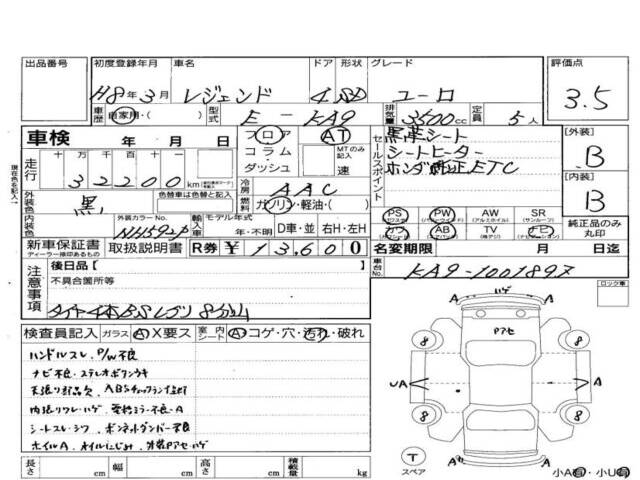 出品番号 初度登録年月 車名 ドア 形状 グレード 評価点
H8年3月 レジェンド 4 SD ユーロ 3.5
車歴 自家用・( ) 型式 E-KA9 排気量 3500cc 定員 5人
車検 年 月 日 フロア AT セールスポイント 黒革シート [外装]
現在色を記入 走行 十万千百十 コラム MTのみ記入 シートヒーター B
32200km ダッシュ 速 ホンダ純正ETC [内装]
外装色 黒 色替車は色替と記入 冷房 AAC B
燃料 ガソリン・軽油・( ) PS PW AW SR 純正品のみ丸印
内装色 外装カラーNo. NH592P 輸入車 モデル年式 年・不明 D車・並 右H・左H カワ AB TV ナビ
新車保証書 取扱説明書 R券 ¥13,600 名変期限 月 日迄
ディーラー捺印あるもの
注意事項 後日品[ ] 車台No. KA9-1001897
不具合箇所等 ロック車
タイヤ4本BSレグノ8分山
検査員記入 ガラス A X要ス 室内シート A コゲ・穴・汚れ・破れ
ハンドルスレ P/W不良
ナビ不良・ステレオ
天張り ABSチェックランプ点灯
内張り ハゲ ミラー不良・A
シートスレ・シワ ボンネットダンパー不良
ホイルA オイルにじみ 外装Pアセ・ハゲ
長さ cm 幅 cm 高さ cm 積載量 kg
ハゲ
A A
Pアセ
8 8
UA A
8 8
T A A
スペア 小A有・小U有